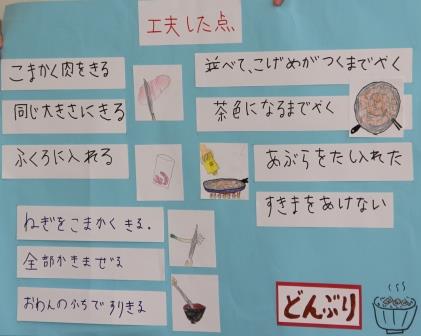 工夫した点
こまかく肉をきる
同じ大きさにきる
ふくろに入れる
並べて、こげめがつくまでやく
茶色になるまでやく
あぶらをたし入れた
すきまをあけない
ねぎをこまかくきる.
全部かきまぜる
おわんのふちですりきる
どんぶり